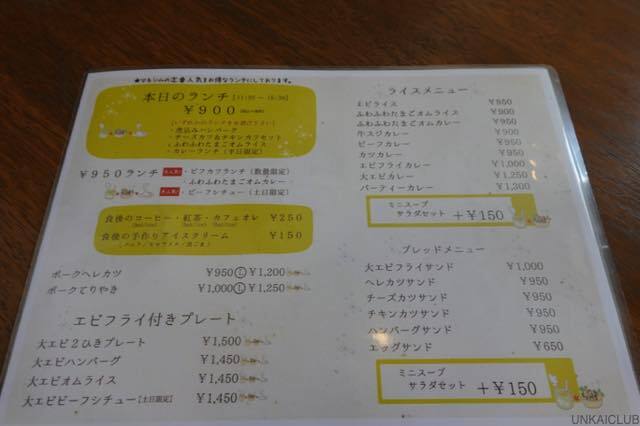 ★マキシムの定番人気をお得なランチにしております。
本日のランチ
￥900
・煮込みハンバーグ
・チーズカツ＆チキンカツセット
・ふわふわたまごオムライス
・カレーランチ（平日限定）
￥950ランチ
・ビフカツランチ（数量限定）
・ふわふわたまごオムカレー
・ビーフシチュー（土日限定）
食後のコーヒー・紅茶・カフェオレ ￥250
食後の手作りアイスクリーム ￥150
ポークヘレカツ ￥950 ￥1,200
ポークてりやき ￥1,000 ￥1,250
エビフライ付きプレート
大エビ2ひきプレート ￥1,500
大エビハンバーグ ￥1,450
大エビオムライス ￥1,450
大エビビーフシチュー【土日限定】 ￥1,450
ライスメニュー
エビライス ￥850
ふわふわたまごオムライス ￥900
ふわふわたまごオムカレー ￥950
牛スジカレー ￥900
ビーフカレー ￥850
カツカレー ￥950
エビフライカレー ￥1,000
大エビカレー ￥1,250
パーティーカレー ￥1,300
ミニスープ
サラダセット ＋￥150
ブレッドメニュー
大エビフライサンド ￥1,000
ヘレカツサンド ￥950
チーズカツサンド ￥950
チキンカツサンド ￥950
ハンバーグサンド ￥950
エッグサンド ￥650
ミニスープ
サラダセット ＋￥150
UNKAICLUB